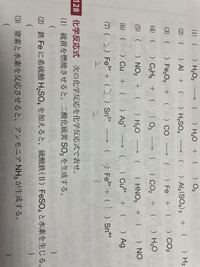 (1) H₂O₂ ⟶ ( ) H₂O + ( ) O₂
(2) ( ) Al + ( ) H₂SO₄ ⟶ ( ) Al₂(SO₄)₃ + ( ) H₂
(3) ( ) Fe₂O₃ + ( ) CO ⟶ ( ) Fe + ( ) CO₂
(4) ( ) C₂H₆ + ( ) O₂ ⟶ ( ) CO₂ + ( ) H₂O
(5) ( ) NO₂ + ( ) H₂O ⟶ ( ) HNO₃ + ( ) NO
(6) ( ) Cu + ( ) Ag⁺ ⟶ ( ) Cu²⁺ + ( ) Ag
(7) ( 2 ) Fe³⁺ + ( ) Sn²⁺ ⟶ ( 2 ) Fe²⁺ + ( ) Sn⁴⁺
128 化学反応式 次の化学反応を化学反応式で表せ。
(1) 硫黄を燃焼させると,二酸化硫黄 SO₂ を生成する。
( )
(2) 鉄 Fe に希硫酸 H₂SO₄ を加えると,硫酸鉄(II) FeSO₄ と水素を生じる。
( )
(3) 窒素と水素を反応させると,アンモニア NH₃ が生成する。
( )